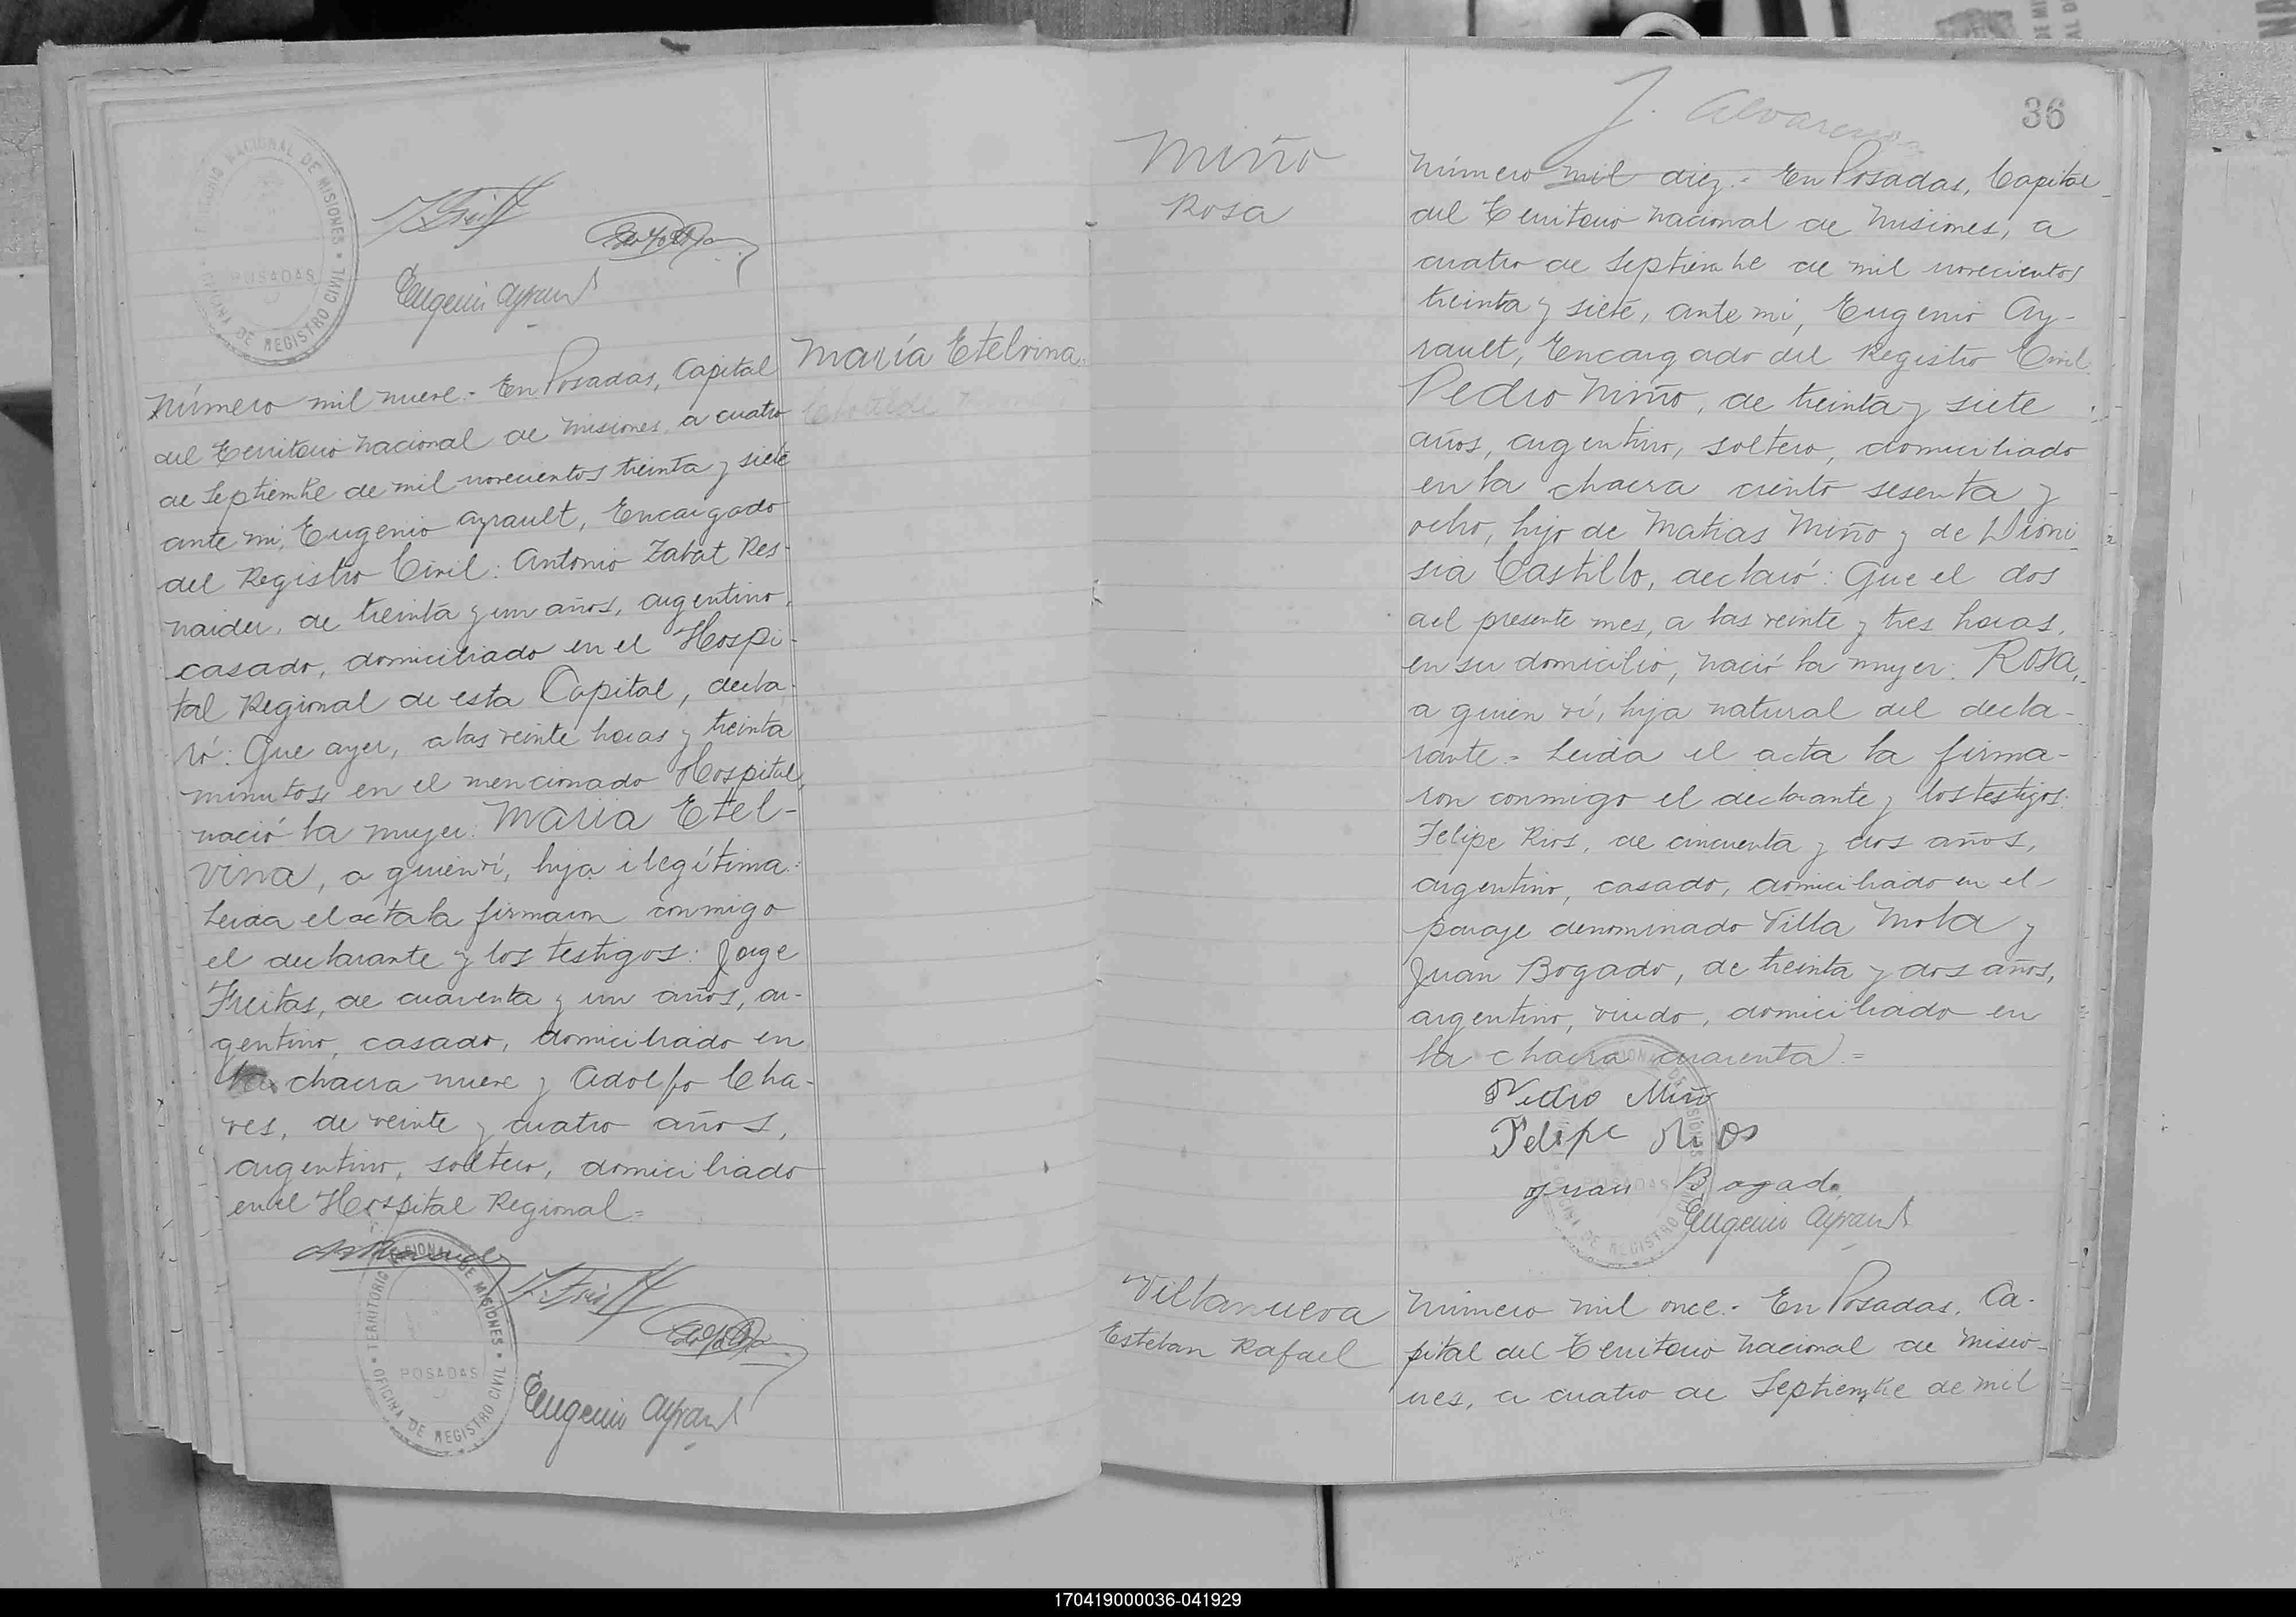 TERRITORIO NACIONAL DE MISIONES
POSADAS
OFICINA DE REGISTRO CIVIL
Eugenio Ayrault
Número mil nueve.- En Posadas, Capital
del Territorio Nacional de Misiones, a cuatro
de Septiembre de mil novecientos treinta y siete
ante mi, Eugenio Ayrault, Encargado
del Registro Civil: Antonio Zabat Res-
naider, de treinta y un años, argentino,
casado, domiciliado en el Hospi-
tal Regional de esta Capital, decla-
ró: Que ayer, a las veinte horas y treinta
minutos, en el mencionado Hospital,
nació la mujer: María Etel-
vina, a quien ví, hija ilegítima.-
Leida el acta la firmaron conmigo
el declarante y los testigos: Jorge
Freitas, de cuarenta y un años, ar-
gentino, casado, domiciliado en
la chacra nueve y Adolfo Cha-
ves, de veinte y cuatro años,
argentino, soltero, domiciliado
en el Hospital Regional=
TERRITORIO NACIONAL DE MISIONES
POSADAS
OFICINA DE REGISTRO CIVIL
Eugenio Ayrault
María Etelvina
J. Alvarenga
36
Miño
Rosa
Número mil diez.- En Posadas, Capital
del Territorio Nacional de Misiones, a
cuatro de Septiembre de mil novecientos
treinta y siete, ante mi, Eugenio Ay-
rault, Encargado del Registro Civil
Pedro Miño, de treinta y siete
años, argentino, soltero, domiciliado
en la chacra ciento sesenta y
ocho, hijo de Matias Miño y de Dioni-
sia Castillo, declaró: Que el dos
del presente mes, a las veinte y tres horas,
en su domicilio, nació la mujer: Rosa,
a quien ví, hija natural del decla-
rante.- Leida el acta la firma-
ron conmigo el declarante y los testigos:
Felipe Rios, de cincuenta y dos años,
argentino, casado, domiciliado en el
paraje denominado Villa Mola y
Juan Bogado, de treinta y dos años,
argentino, viudo, domiciliado en
la chacra cuarenta.=
Pedro Miño
Felipe Rios
Juan Bogado
Eugenio Ayrault
Villanueva
Esteban Rafael
Número mil once.- En Posadas, Ca-
pital del Territorio Nacional de Misio-
nes, a cuatro de Septiembre de mil
170419000036-041929